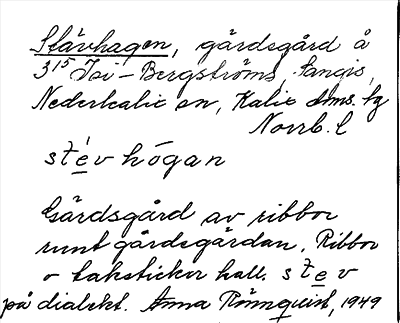 Stävhagen, gärdsgård å
3¹⁵ Isi-Bergströms, Sangis,
Nederkalix sn, Kalix dms. hg
Norrb. l
stévhógan
Gärdsgård av ribbor
runt gårdsgårdan. Ribbor
o taksticker hall. stev
på dialekt. Anna Rönnquist, 1949